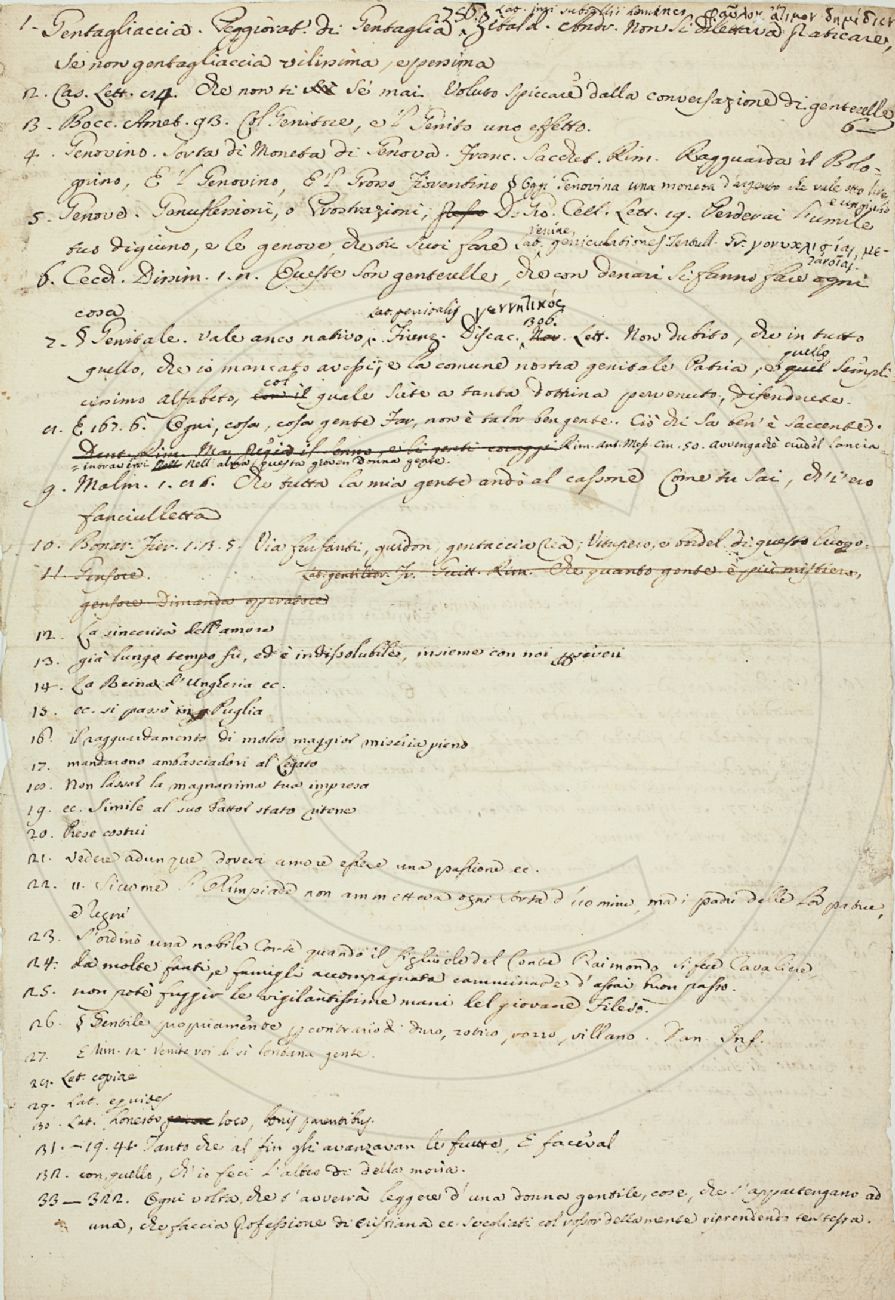 256.
Lat.
φαῦλον
1. Gentagliaccia. Peggiorat. di Gentaglia. Zibald. Andr. Non si dilettava praticare,
se non gentagliaccia vilissima, e pessima
2. Cas. Lett. 24. Che non ti sè mai voluto spiccare dalla conversazione di genterelle
6
3. Bocc. Amet. 93. Col Genitore, e 'l Genito uno effetto.
4. Genovino. Sorta di Moneta di Genova. Franc. Sacchet. Rim. Ragguarda il Bolo-
gnino, E 'l Genovino, E 'l Grosso Fiorentino § Oggi Genovina una moneta d'argento che vale otto lire
e un giulio
5. Genove. Genuflessioni, o Prostrazioni, D. Gio. Cell. Lett. 19. Perderai l'umile
tuo digiuno, e le genove, che tu suoi fare Lat. geniculationes Tertull. Gr. γονυκλισίαι, με-
τάνοιαι.
6. Cecch. Dissim. 1. 2. Queste son genterelle, che con denari si fanno fare ogni
cosa
Lat. γεννητικός
306.
7. § Genitale. Vale anco nativo. Firenz. Discac. Lett. Non dubito, che in tutto
quello, che io mancato avessi, e la comune nostra genitale Patria, e quello sempli-
cissimo alfabeto, col quale siete a tanta dottrina pervenuto, difenderete.
8. E 167. 6. Ogni, cosa, cosa gente Far, non è talor ben gente. Ciò chi sa ben' è saccente.
Rim. Ant. Mess. Cin. 50. avvengachè cuid'il lancia-
Nell'alma questa giovin donna gente.
9. Malm. 1. 26. Che tutta la mia gente andò al cassone Come tu sai, ch'i'ero
fanciulletta
10. Bonar. Fier. 1. 3. 5. Via furfanti, guidon, gentaccia rea, Vitupero, e bordel di questo luogo.
11. Gensore. Lat. gentilior. Fr. Guitt. Rim. Che quanto gente è più mistiero,
gensore dimanda operatore
12. La sincerità dell'amore
13. già lungo tempo fù, ed è indissolubile, insieme con noi
14. La Reina d'Ungheria ec.
15. ec. si passò in Puglia
16. il ragguardamento di molto maggior miseria pieno
17. mandarono ambasciadori al Legato
18. Non lassar la magnanima tua impresa
19. ec. Simile al suo Fattor stato ritene
20. Prese costui
21. Vedere adunque dovevi amore essere una passione ec.
22. Siccome l'Olimpiade non ammetteva ogni sorta d'uomini, ma i padri delle lor patrie,
e Regni
23. S'ordinò una nobile Corte quando il figliuolo del Conte Raimondo si fece Cavaliere,
24. da molte fanti, e famigli accompagnata camminando d'assai buon passo.
25. non potè fuggir le vigilantissime mani del giovane Fileno.
26. § Gentile propriamente contrario di duro, rotico, rozzo, villano. Dan. Inf.
27. Venite voi gente.
28. Lat. copiae
29. Lat. equites
30. Lat. honesto loco, bonis parentibus.
31. — 19. 41. Tanto che al fin gli avanzavan le frutte, E faceval
32. con quello, ch'io feci l'altro dì della moria.
33 — 322. Ogni volta, che t'avverrà leggere d'una donna gentile, cose, che s'appartengano ad
una, che faccia professione di cristiana ec. svegliati col rossor della mente riprendendo te stessa.